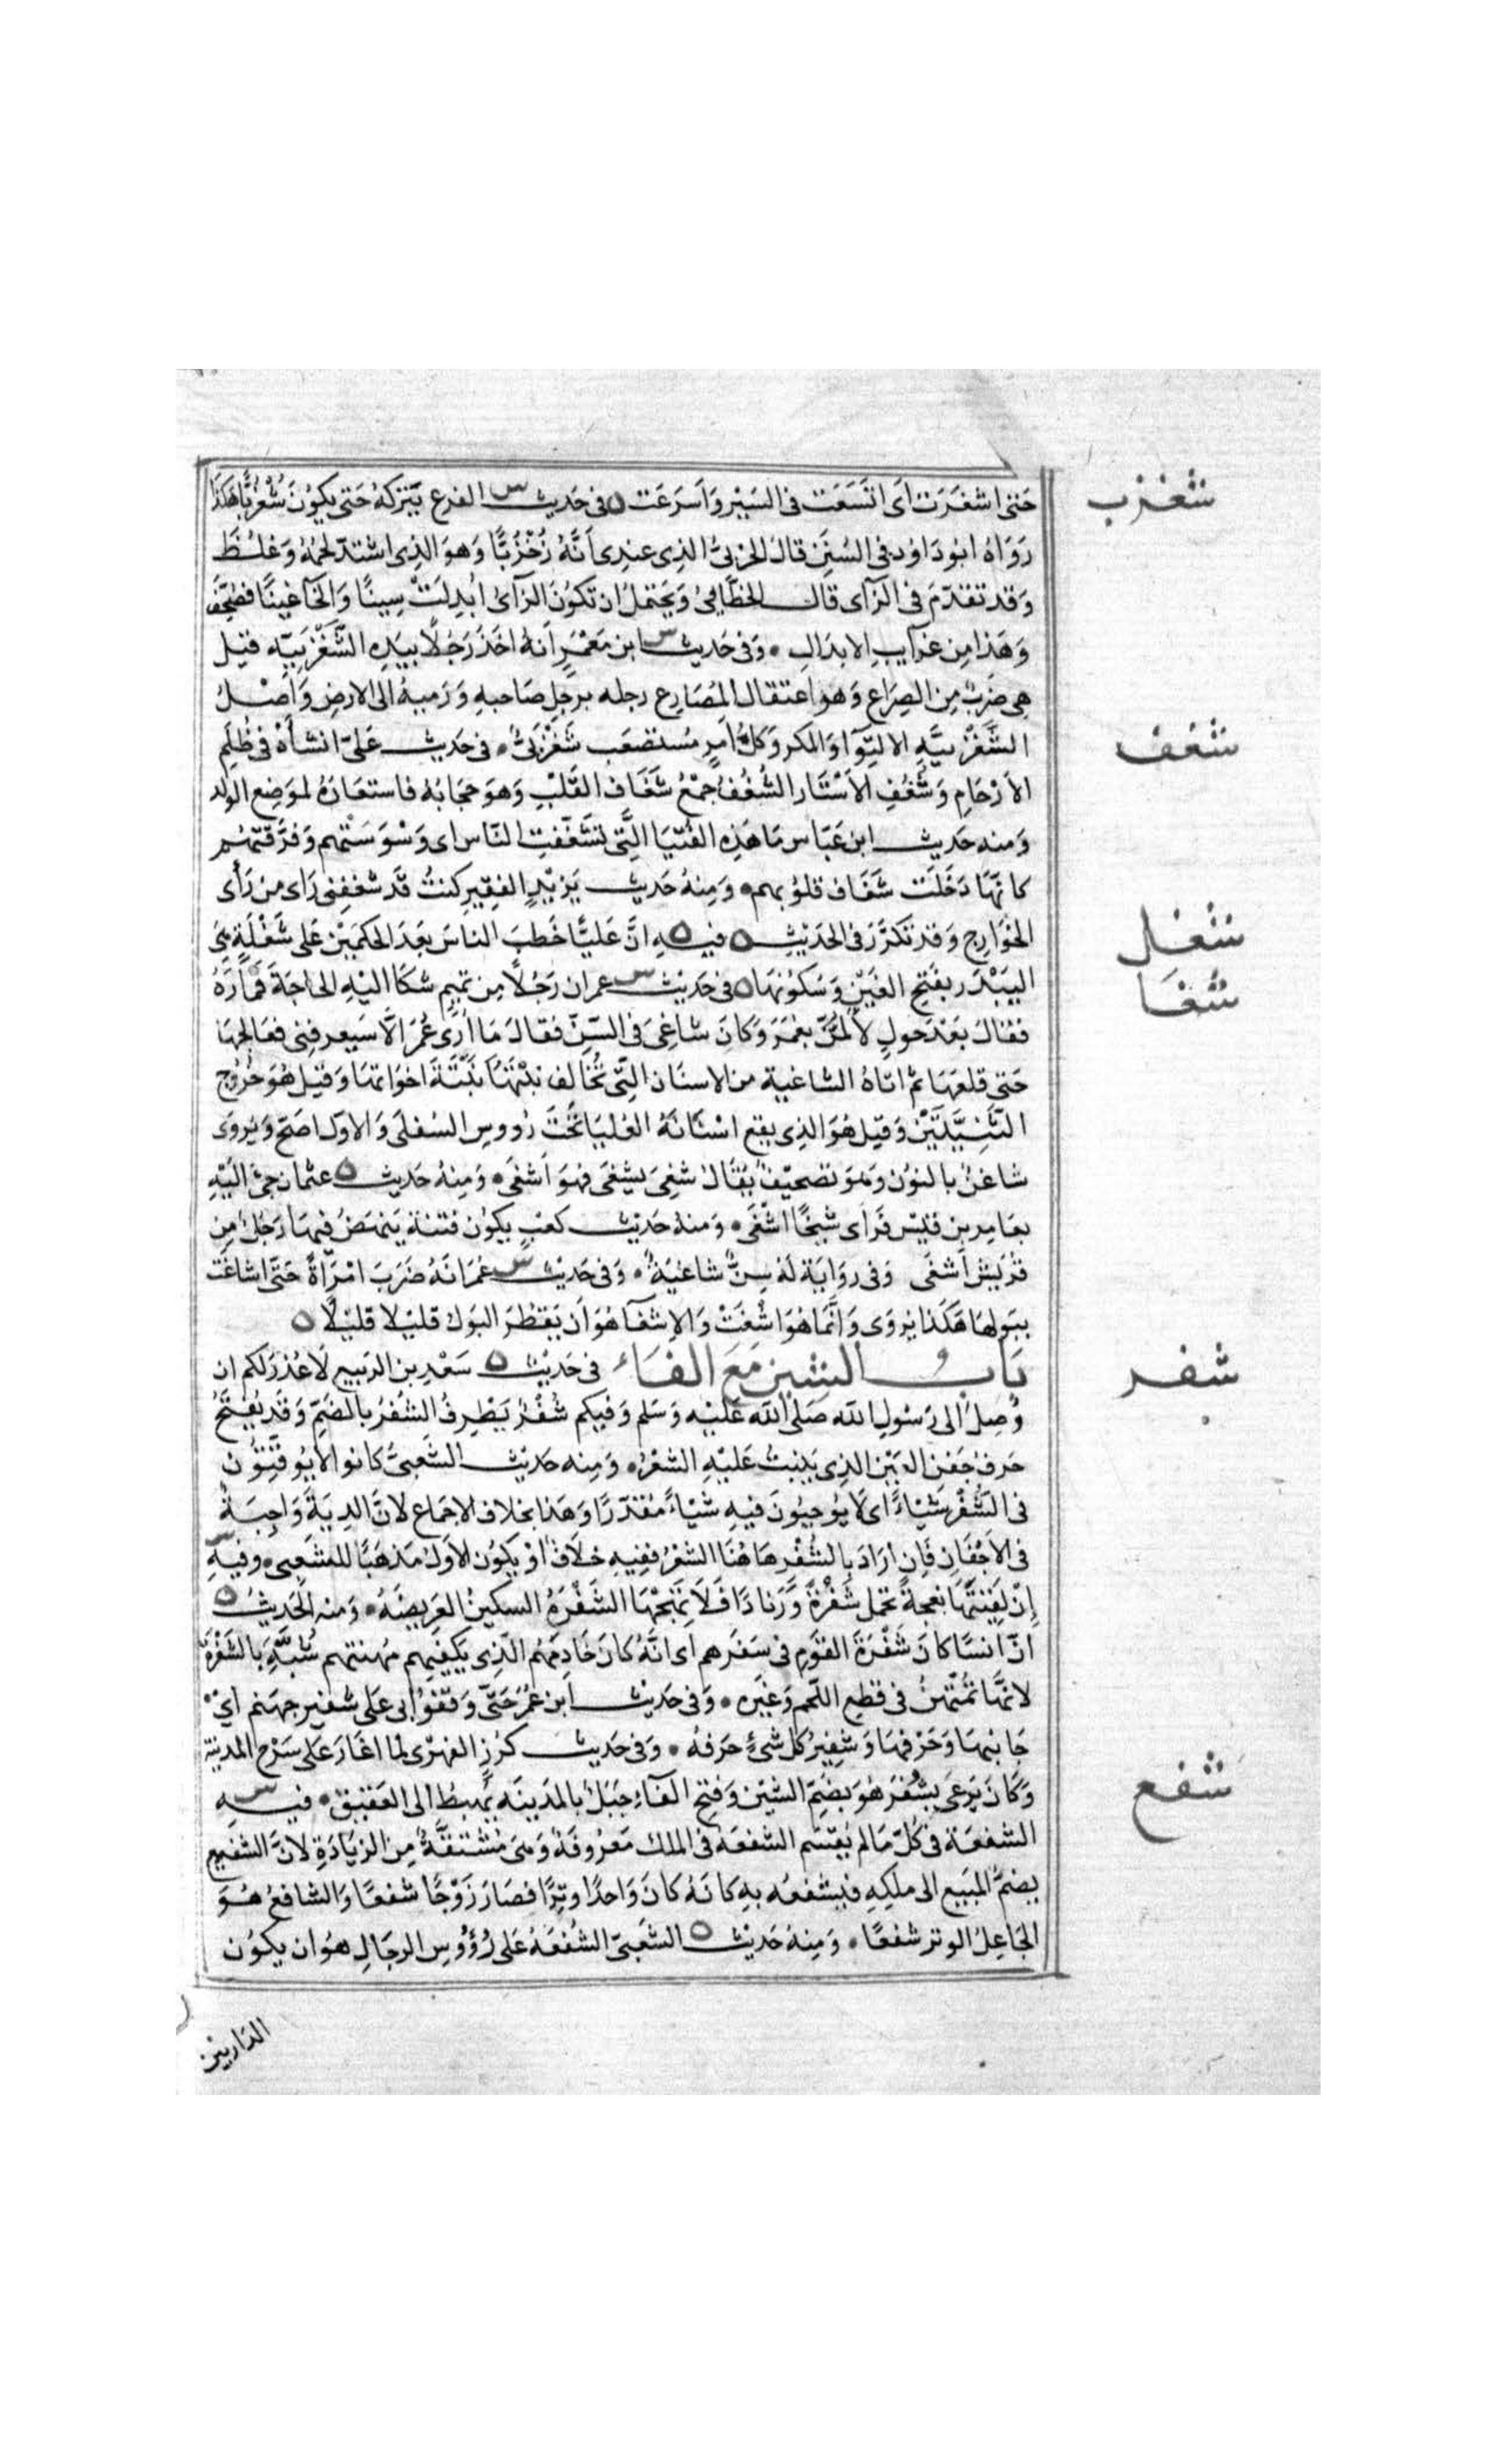 شغزب
حتى اشغرت اى اتسعت فى السير واسرعت ه فى حديث س الفرع يتركه حتى يكون شغزبا هكذا
رواه ابو داود فى السنن قال الحربى الذى عندى انه زخزبا وهو الذى اشتد لحمه وغلظ
وقد تقدم فى الزآى قال الخطابى ويحتمل ان تكون الزآى ابدلت سينا والخآ غينا فصحف
وهذا من غرآيب الابدال • وفى حديث س ابن معمر انه اخذ رجلا بيده الشغزبيه قيل
هى ضرب من الصراع وهو اعتقال المصارع رجله برجل صاحبه ورميه الى الارض واصل
شغف
الشغزبيه الالتوآ والمكر وكل امر مستصعب شغزبى • فى حديث على انشأه فى ظلم
الارحام وشغف الاستار الشغف جمع شغاف القلب وهو حجابه فاستعاره لموضع الولد
ومنه حديث ابن عباس ما هذه الفتيا التى تشغفت الناس اى وسوستهم وفرقتهم
كانها دخلت شغاف قلوبهم • ومنه حديث يزيد الفقير كنت قد شغفنى راى من رأى
شغل
الخوارج وقد تكرر فى الحديث ه فيه ه ان عليا خطب الناس بعد الحكمين على شغلة هى
شغا
البيدر بفتح الغين وسكونها ه فى حديث س عمران رجلا من تميم شكا اليه الحاجة فماره
فقال بعد حول لالمن بعمر وكان شاغى فى السن فقال ما ارى عمر الا سيعرفنى فعالجها
حتى قلعها ثم اتاه الشاغية من الاسنان التى تخالف نبتتها نبتة اخواتها وقيل هو خروج
الثنيتين وقيل هو الذى يقع اسنانه العليا تحت رووس السفلى والاول اصح ويروى
شاغن بالنون وهو تصحيف يقال شغى يشغى فهو اشغى • ومنه حديث ه عثمان جئ اليه
بعامر بن قيس فراى شيخا اشغى • ومنه حديث كعب يكون فتنة ينهض فيها رجل من
قريش اشغى وفى رواية له سن شاغية • وفى حديث س عمر انه ضرب امرأة حتى اشاغت
ببولها هكذا يروى وانما هو اشغت والاشغآ هو ان يقطر البول قليلا قليلا ه
شفر
باب الشين مع الفاء فى حديث ه سعد بن الربيع لا عذر لكم ان
وصل الى رسول الله صلى الله عليه وسلم وفيكم شفر يطرف الشفر بالضم وقد يفتح
حرف جفن العين الذى ينبت عليه الشعر • ومنه حديث الشعبى كانوا لا يوقتون
فى الشفر شياء اى لا يوجبون فيه شياء مقدرا وهذا بخلاف الاجماع لان الدية واجبة
فى الاجفان فان اراد بالشفر هاهنا الشعر ففيه خلاف او يكون الاول مذهبا للشعبى • وفيه س
ان لقيتها نعجة تحمل شفرة وزنادا فلا تهجها الشفرة السكين العريضه • ومنه الحديث ه
ان انسا كان شفرة القوم فى سفرهم اى انه كان خادمهم الذى يكفيهم مهنتهم شبه بالشفرة
لانها تمتهن فى قطع اللحم وغيره • وفى حديث ابن عمر حتى وقفوا بى على شفير جهنم اى
جانبها وحرفها وشفير كل شئ حرفه • وفى حديث كرز الفهرى لما اغار على سرح المدينة
شفع
وكان يرعى بشفر هو بضم الشين وفتح الفآء جبل بالمدينه يهبط الى العقيق • فيه س
الشفعة فى كل ما لم يقسم الشفعه فى الملك معروفه وهى مشتقة من الزيادة لان الشفيع
يضم المبيع الى ملكه فيشفعه به كانه كان واحدا وترا فصار زوجا شفعا والشافع هو
الجاعل الوتر شفعا • ومنه حديث ه الشعبى الشفعه على رؤوس الرجال هو ان يكون
الدار بين